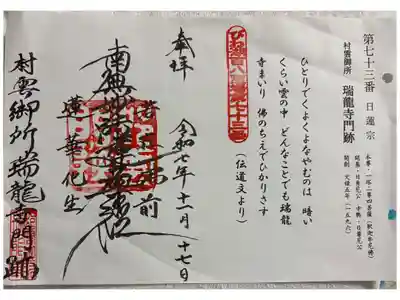 第七十三番 日蓮宗
村雲御所 瑞龍寺門跡
本尊・一塔二尊四菩薩
開創 文禄五年(一五九六)
ひとりでくよくよなやむのは 暗い
くらい雲の中 どんなことでも瑞龍
寺まいり 佛のちえでひかりさす
(伝道文より)
奉拝
令和七年十一月十七日
南無妙法蓮華経
蓮華化生
村雲御所瑞龍寺門跡